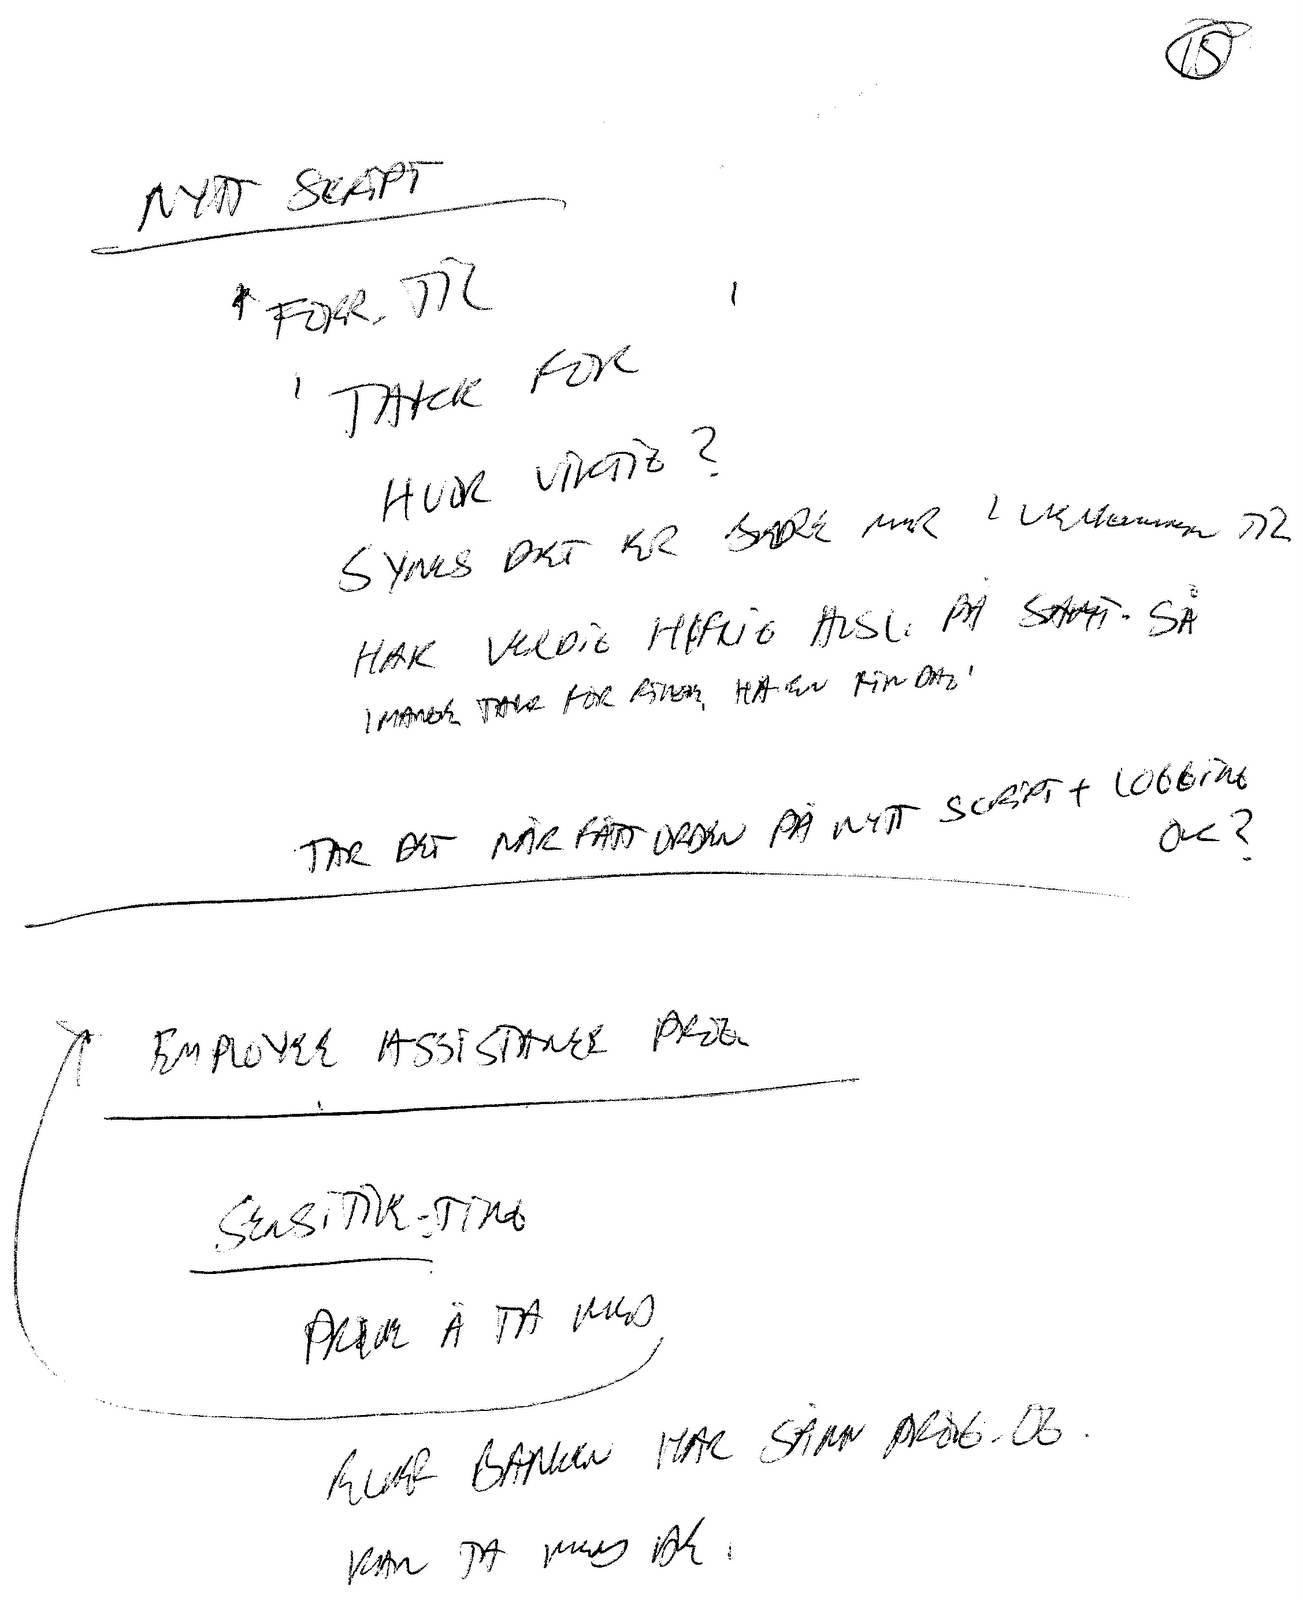 15
NYTT SCRIPT
* FORR. TIL
' TAKK FOR '
HVOR VIKTIG?
SYNES DET ER BEDRE MER ' VELKOMMEN TIL
HAR VERDIG HØFLIG AVSL. PÅ SAMT. SÅ
MANGE TAKK FOR RINGE, HA EN FIN DAG'
TAR DET NÅR FÅTT ORDEN PÅ NYTT SCRIPT + LOGGING
OK?
EMPLOYEE ASSISTANCE PROG.
SENSITIVE-TING
PRØVE Å TA MED
ELLER BANKEN HAR SÅNN PROG. OG.
KAN TA MED DE.